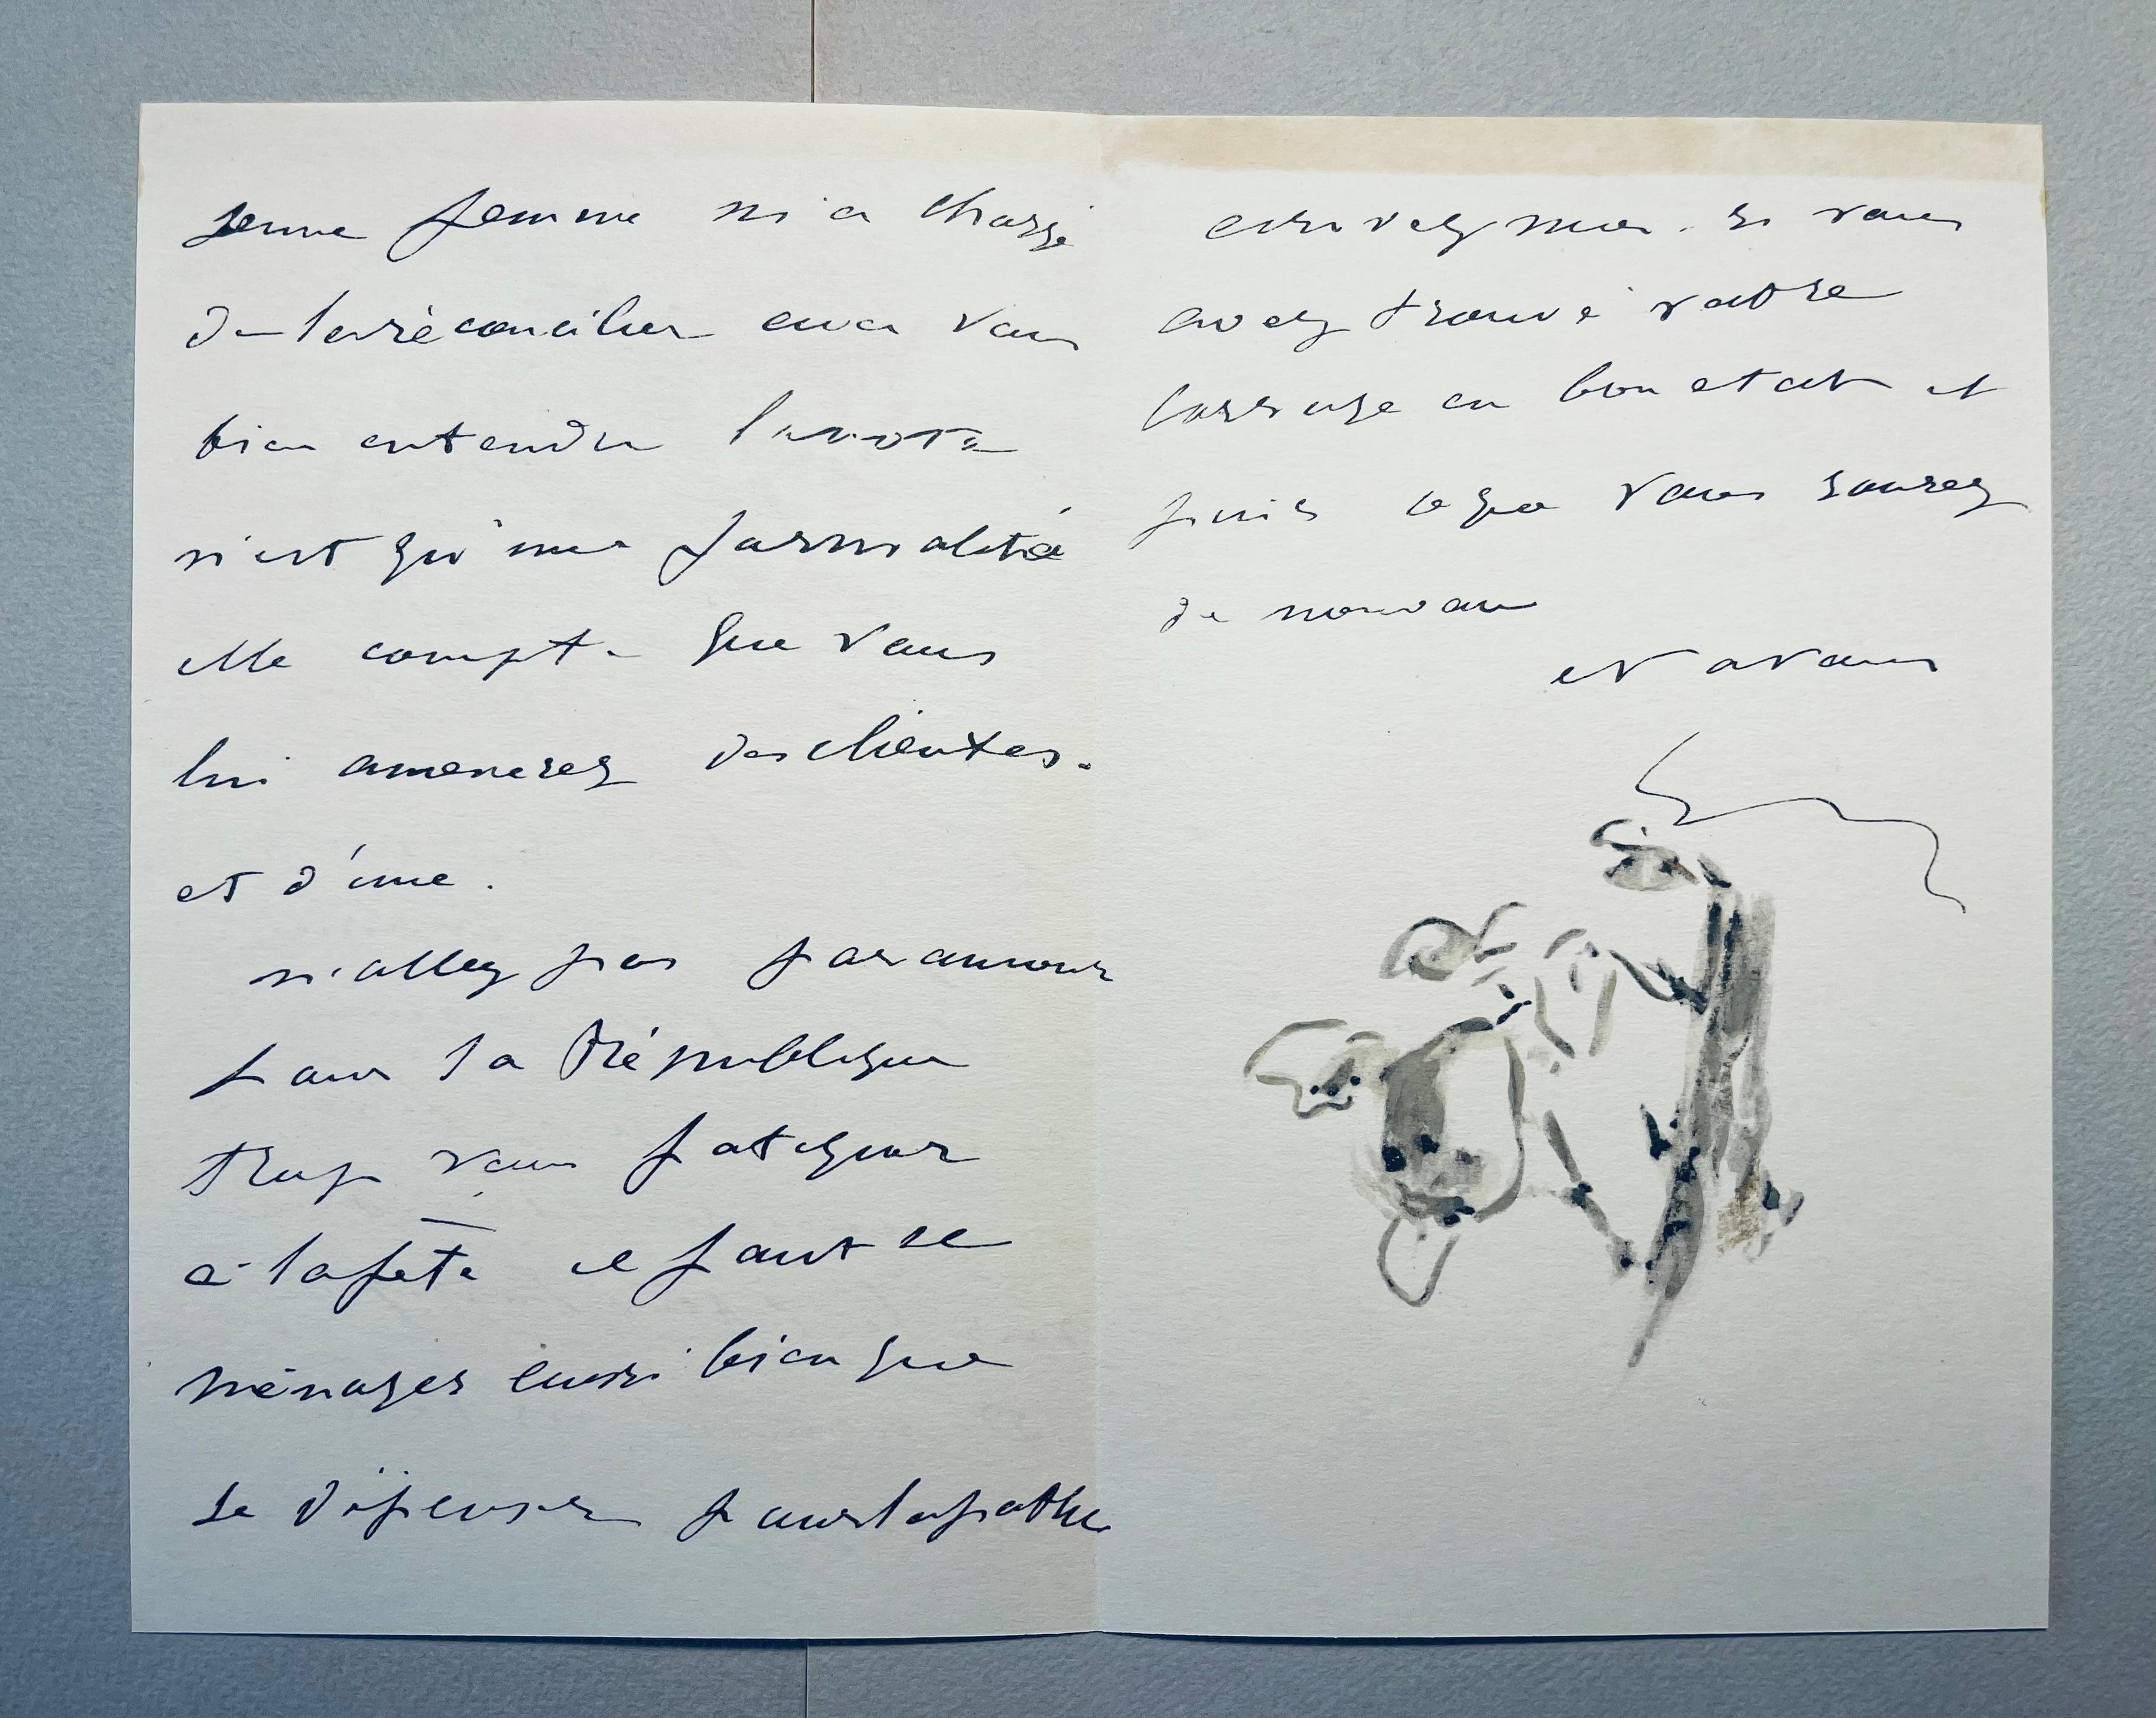 jeune femme m'a chargé
de la réconcilier avec vous
bien entendu la note
n'est qu'une formalité
elle compte que vous
lui amenerez des clientes.
et d'une.
n'allez pas par amour
pour la République
trop vous fatiguer
à la fête il faut se
ménager aussi bien que
se dépenser pour la pat
ecrivez moi. si vous
avez trouvé votre
en bon etat et
puis ce que vous saurez
de nouveau
et a vous